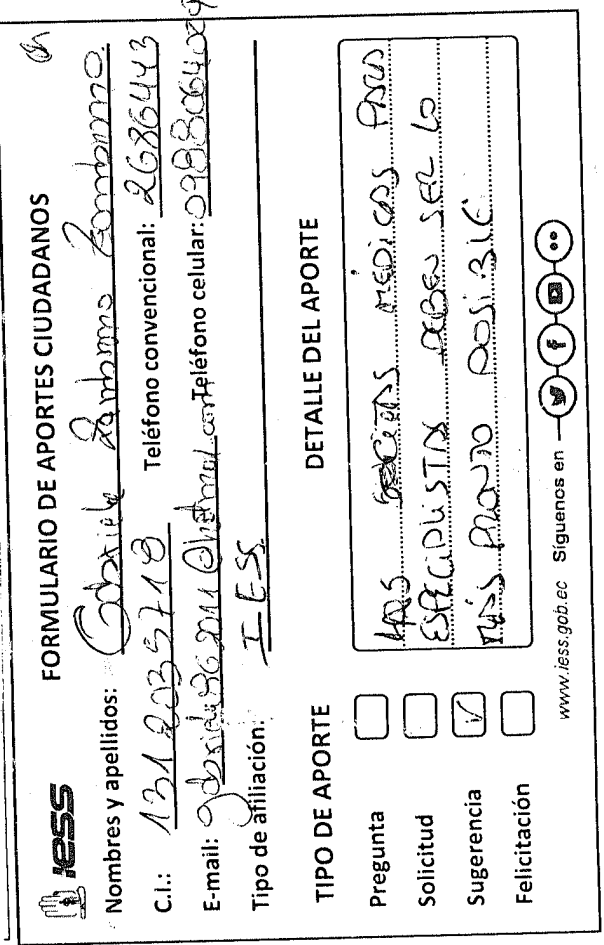 iess
FORMULARIO DE APORTES CIUDADANOS
Nombres y apellidos: Gabriela Zambrano Zambrano.
C.I.: 1312035718 Teléfono convencional: 2686443
E-mail: @hotmail.com Teléfono celular:
Tipo de afiliación: IESS
TIPO DE APORTE
Pregunta
Solicitud
Sugerencia ✓
Felicitación
DETALLE DEL APORTE
LAS MÉDICAS PARA
ESPECIALISTAS DEBEN SER LO
MÁS PRONTO POSIBLE
www.iess.gob.ec Síguenos en